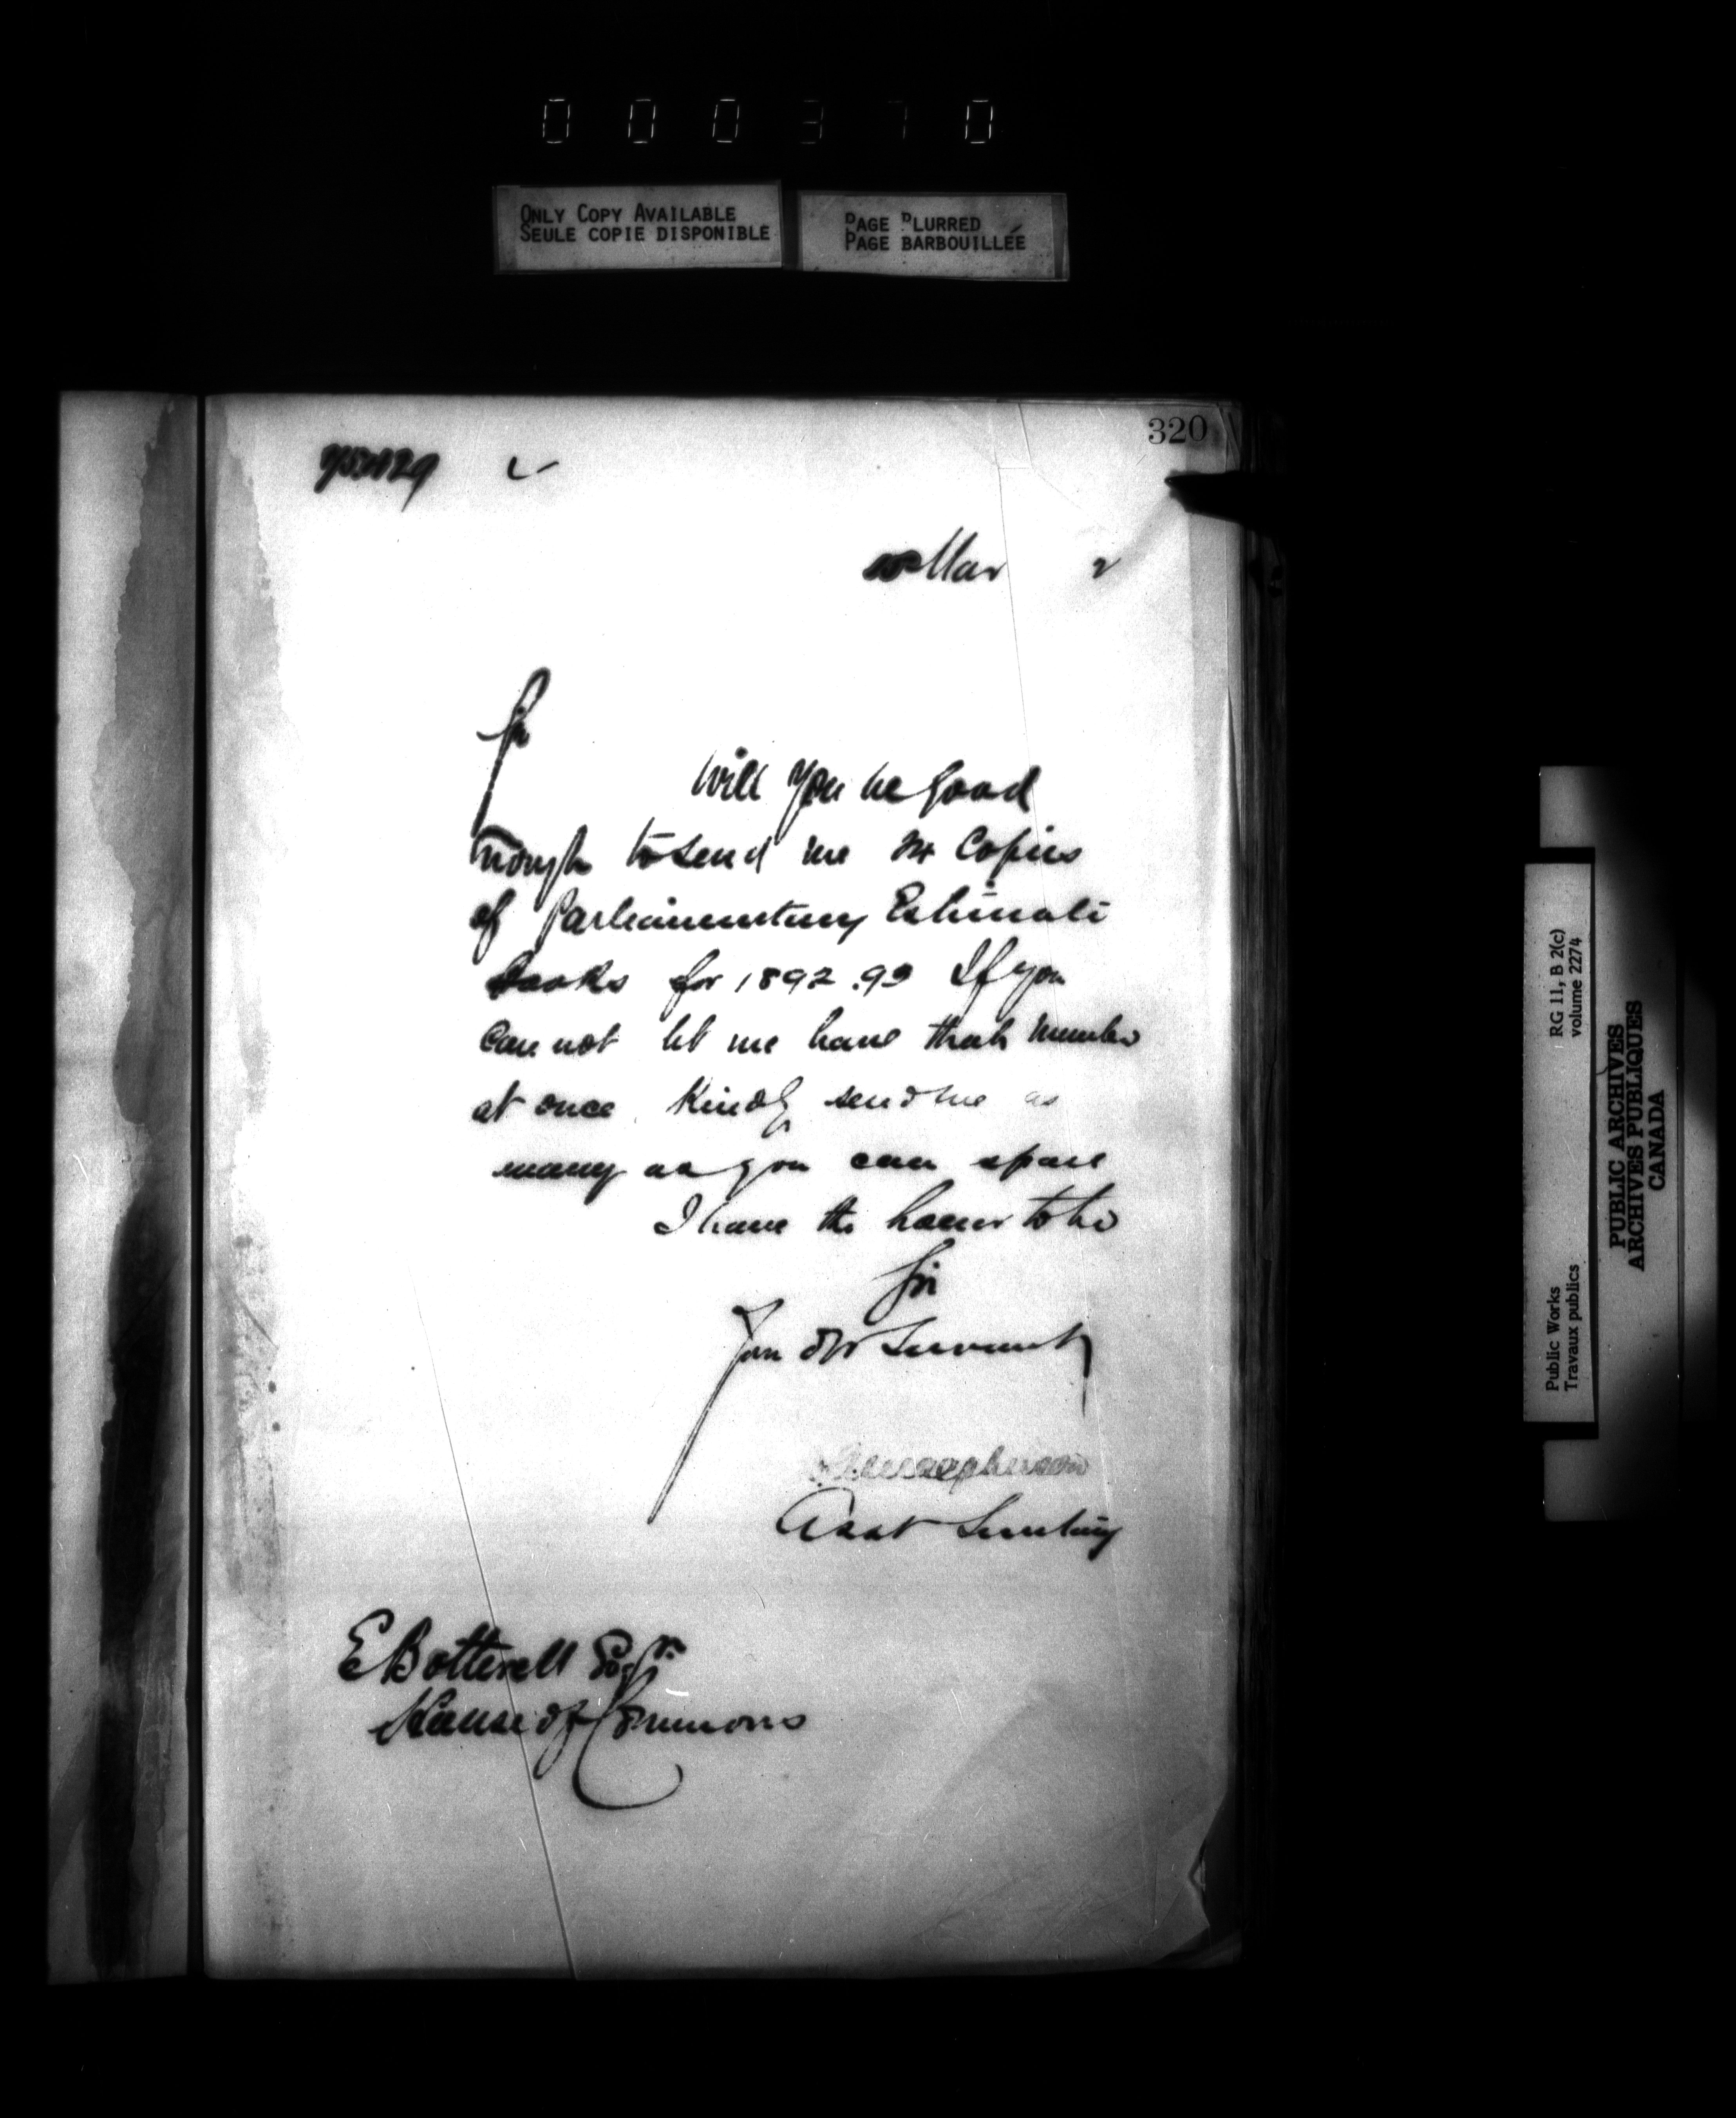 000370
ONLY COPY AVAILABLE
SEULE COPIE DISPONIBLE
PAGE BLURRED
PAGE BARBOUILLÉE
320
Mar 2
Sir
Will you be good
enough to send me 24 Copies
of Parliamentary Estimate
books for 1892.93 If you
can not let me have that number
at once Kindly send me as
many as you can spare
I have the honor to be
Sir
Your Obt Servant
Asst Secretary
E Botterell Esqr.
House of Commons
Public Works
Travaux publics
RG 11, B 2(c)
volume 2274
PUBLIC ARCHIVES
ARCHIVES PUBLIQUES
CANADA